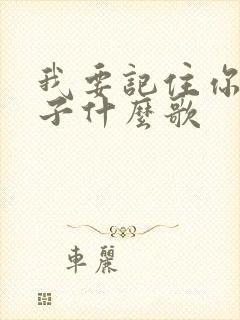 我要記住你
子什麼歌
車麗